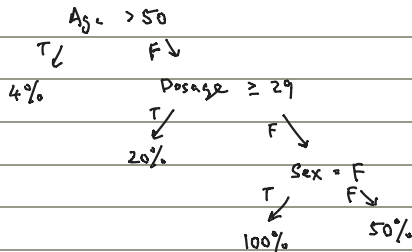 Age > 50
T F
4% Dosage ≥ 29
T F
20% Sex = F
T F
100% 50%